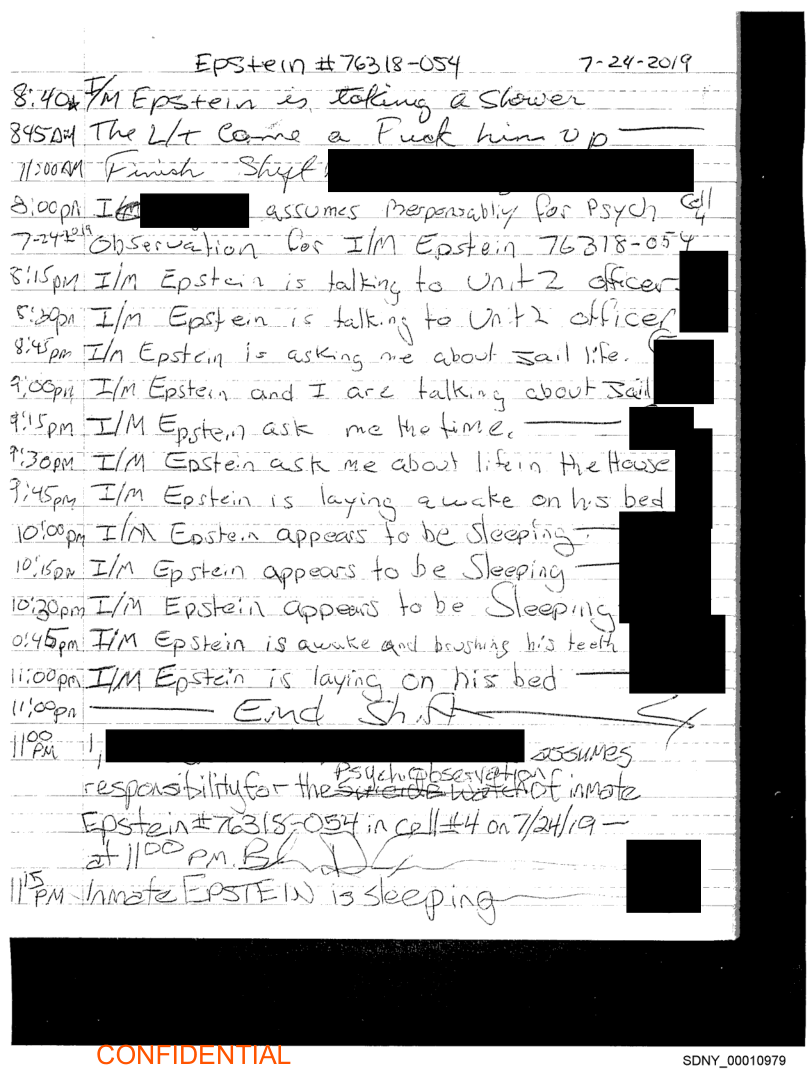 Epstein # 76318-054 7-24-2019
8:40 I/M Epstein is taking a shower
845AM The L/t Came a Fuck him up
11:00AM Finish Shift
8:00pm I assumes Responsabliy for Psych Cell 4
7-24-2019 Observation for I/M Epstein 76318-054
8:15pm I/M Epstein is talking to Unit 2 officer
8:30pm I/M Epstein is talking to Unit 2 officer
8:45pm I/M Epstein is asking me about Jail life.
9:00pm I/M Epstein and I are talking about Jail
9:15pm I/M Epstein ask me the time.
9:30pm I/M Epstein ask me about life in the House
9:45pm I/M Epstein is laying awake on his bed
10:00pm I/M Epstein appears to be sleeping
10:15pm I/M Epstein appears to be Sleeping
10:30pm I/M Epstein appears to be Sleeping
0:45pm I/M Epstein is awake and brushing his teeth
11:00pm I/M Epstein is laying on his bed
11:00pm End Shift
11:00 PM I, assumes
responsibility for the Psych observation of inmate
Epstein #76318-054 in cell #4 on 7/24/19
at 11:00 PM.
11:15 PM Inmate EPSTEIN is sleeping
CONFIDENTIAL
SDNY_00010979